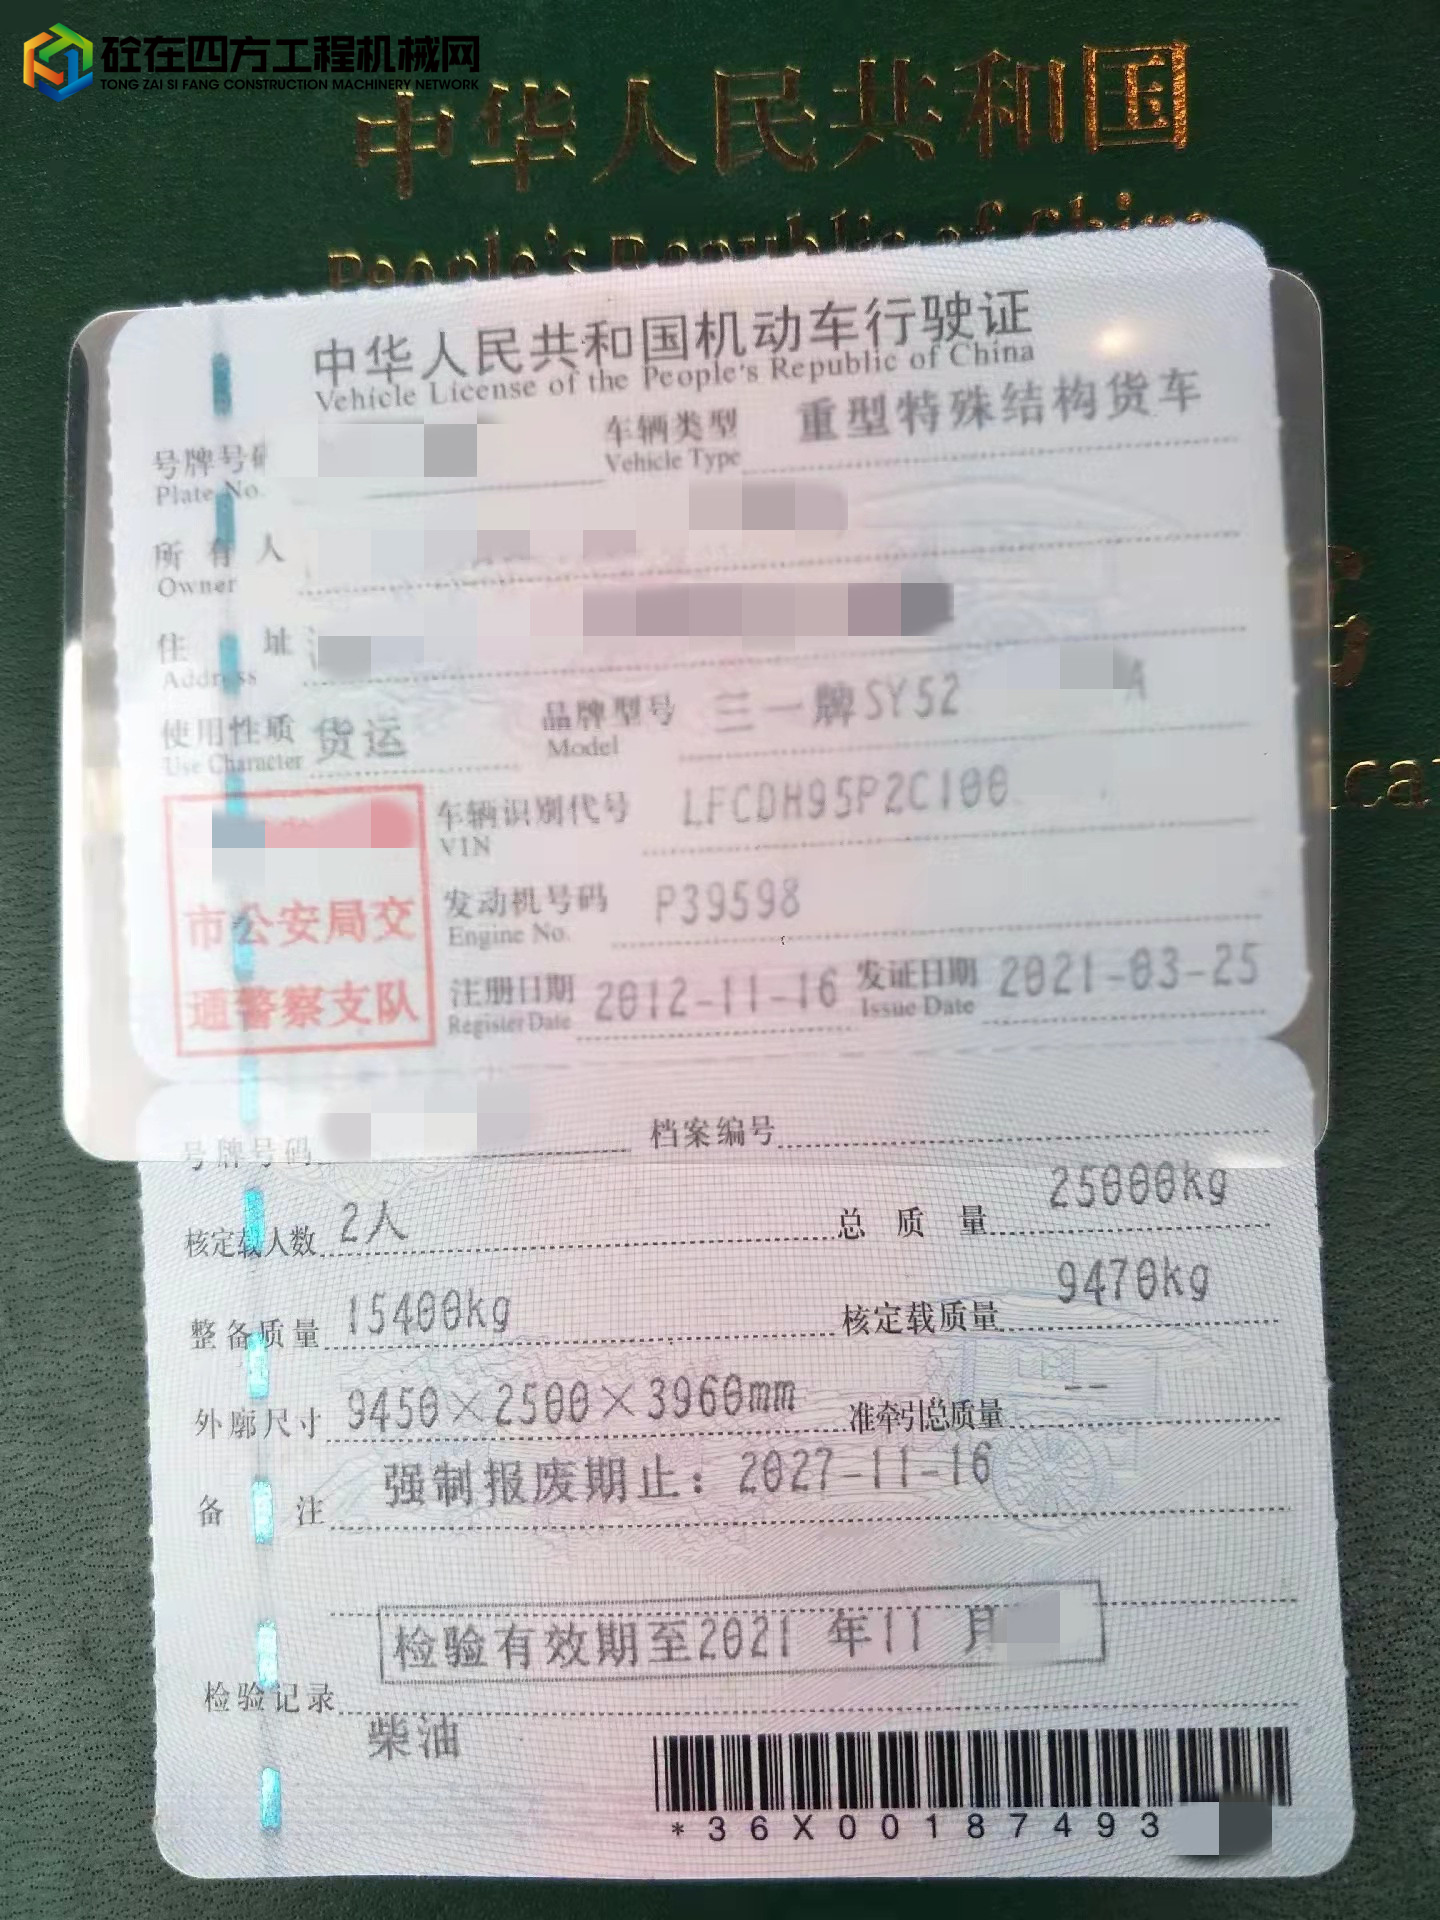 砼在四方工程机械网
TONG ZAI SI FANG CONSTRUCTION MACHINERY NETWORK
中华人民共和国
People's Republic of China
中华人民共和国机动车行驶证
Vehicle License of the People's Republic of China
号牌号码 车辆类型 重型特殊结构货车
Plate No. Vehicle Type
所有人
Owner
住址
Address
使用性质 货运 品牌型号 三一牌SY52 A
Use Character Model
车辆识别代号 LFCDH95P2C100
VIN
市公安局交
通警察支队
发动机号码 P39598
Engine No.
注册日期 2012-11-16 发证日期 2021-03-25
Register Date Issue Date
号牌号码 档案编号
核定载人数 2人 总质量 25000kg
整备质量 15400kg 核定载质量 9470kg
外廓尺寸 9450×2500×3960mm 准牵引总质量 --
备注 强制报废期止：2027-11-16
检验有效期至2021 年11 月
检验记录
柴油
*36X00187493